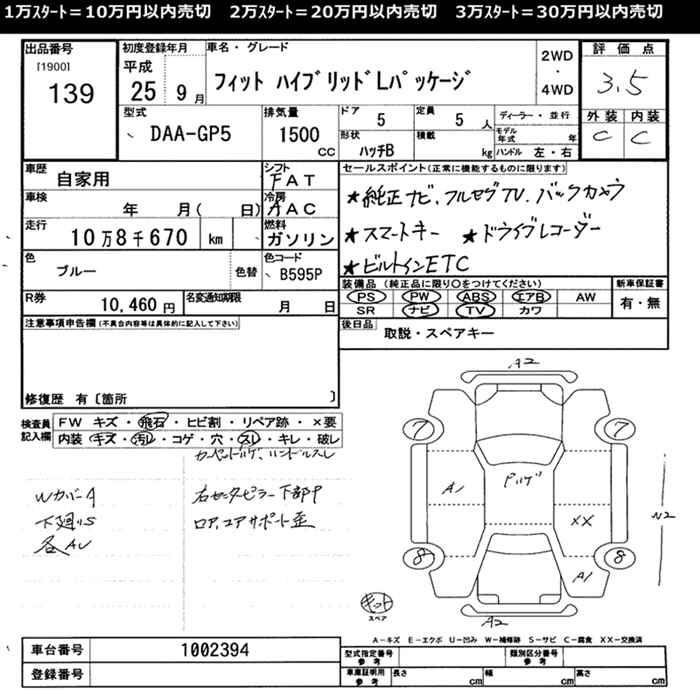 1万ｽﾀｰﾄ＝10万円以内売切　2万ｽﾀｰﾄ＝20万円以内売切　3万ｽﾀｰﾄ＝30万円以内売切
出品番号
[1900]
139
初度登録年月
平成
25 9 月
車名・グレード
フィット ハイブリッドLパッケージ
2WD
・
4WD
評価点
3.5
型式
DAA-GP5
排気量
1500
CC
ドア
5
定員
5 人
ディーラー・並行
形状
ハッチB
積載
kg
モデル年式 年
ハンドル 左・右
外装 内装
C C
車歴
自家用
シフト
FAT
車検
年 月( 日)
冷房
AAC
走行
10万8千670 km
燃料
ガソリン
色
ブルー
色替
色コード
B595P
R券
10,460 円
名変通知期限
月 日
セールスポイント(正常に機能するものに限ります)
★純正ナビ、フルセグTV、バックカメラ
★スマートキー ★ドライブレコーダー
★ビルトインETC
装備品 (純正品に限り○をつけてください)
PS PW ABS エアB AW
SR ナビ TV カワ
新車保証書
有・無
後日品
取説・スペアキー
注意事項申告欄 (不具合内容等は具体的に記入して下さい)
修復歴 有〔箇所 〕
検査員記入欄
FW キズ・飛石・ヒビ割・リペア跡・×要
内装・キズ・汚れ・コゲ・穴・スレ・キレ・破レ
カーペットハゲ、ハンドルスレ
Wカバー A
下廻りS
各AU
右センターピラー下部P
ロア、コアサポート歪
A2
7
7
A1
ドハゲ
XX
A1
8
8
A2
W2
キット
スペア
A－キズ E－エクボ U－凹み W－補修跡 S－サビ C－腐食 XX－交換済
車台番号
1002394
登録番号
型式指定番号
参考
類別区分番号
参考
車庫証明用
参考
長さ cm
幅 cm
高さ cm